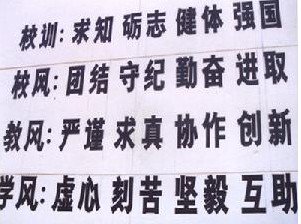 校训: 求知 砺志 健体 强国
校风: 团结 守纪 勤奋 进取
教风: 严谨 求真 协作 创新
学风: 虚心 刻苦 坚毅 互助